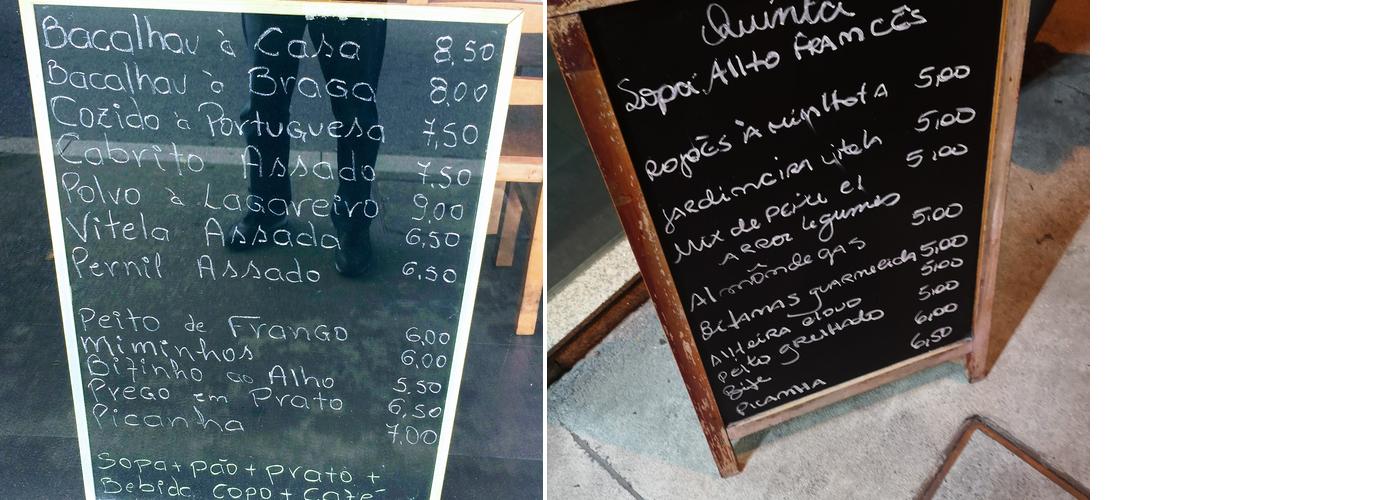 Bacalhau à Casa 8,50
Bacalhau à Braga 8,00
Cozido à Portuguesa 7,50
Cabrito Assado 7,50
Polvo à Lagareiro 9,00
Vitela Assada 6,50
Pernil Assado 6,50
Peito de Frango 6,00
Miminhos 6,00
Bifinho ao Alho 5,50
Prego em Prato 6,50
Picanha 7,00
Sopa + pão + prato +
Bebida copo + Café
Quinta
Sopa: Allto FRANCÊS
ROJOÊS À MINHOTA 5,00
jardineira vitela 5,00
Mix de Peixe e 5,00
arroz legumes
Almôndegas 5,00
Bifanas guarnecida 5,00
Alheira c/ovo 5,00
Peito grelhado 5,00
Bife 6,00
PICANHA 6,50